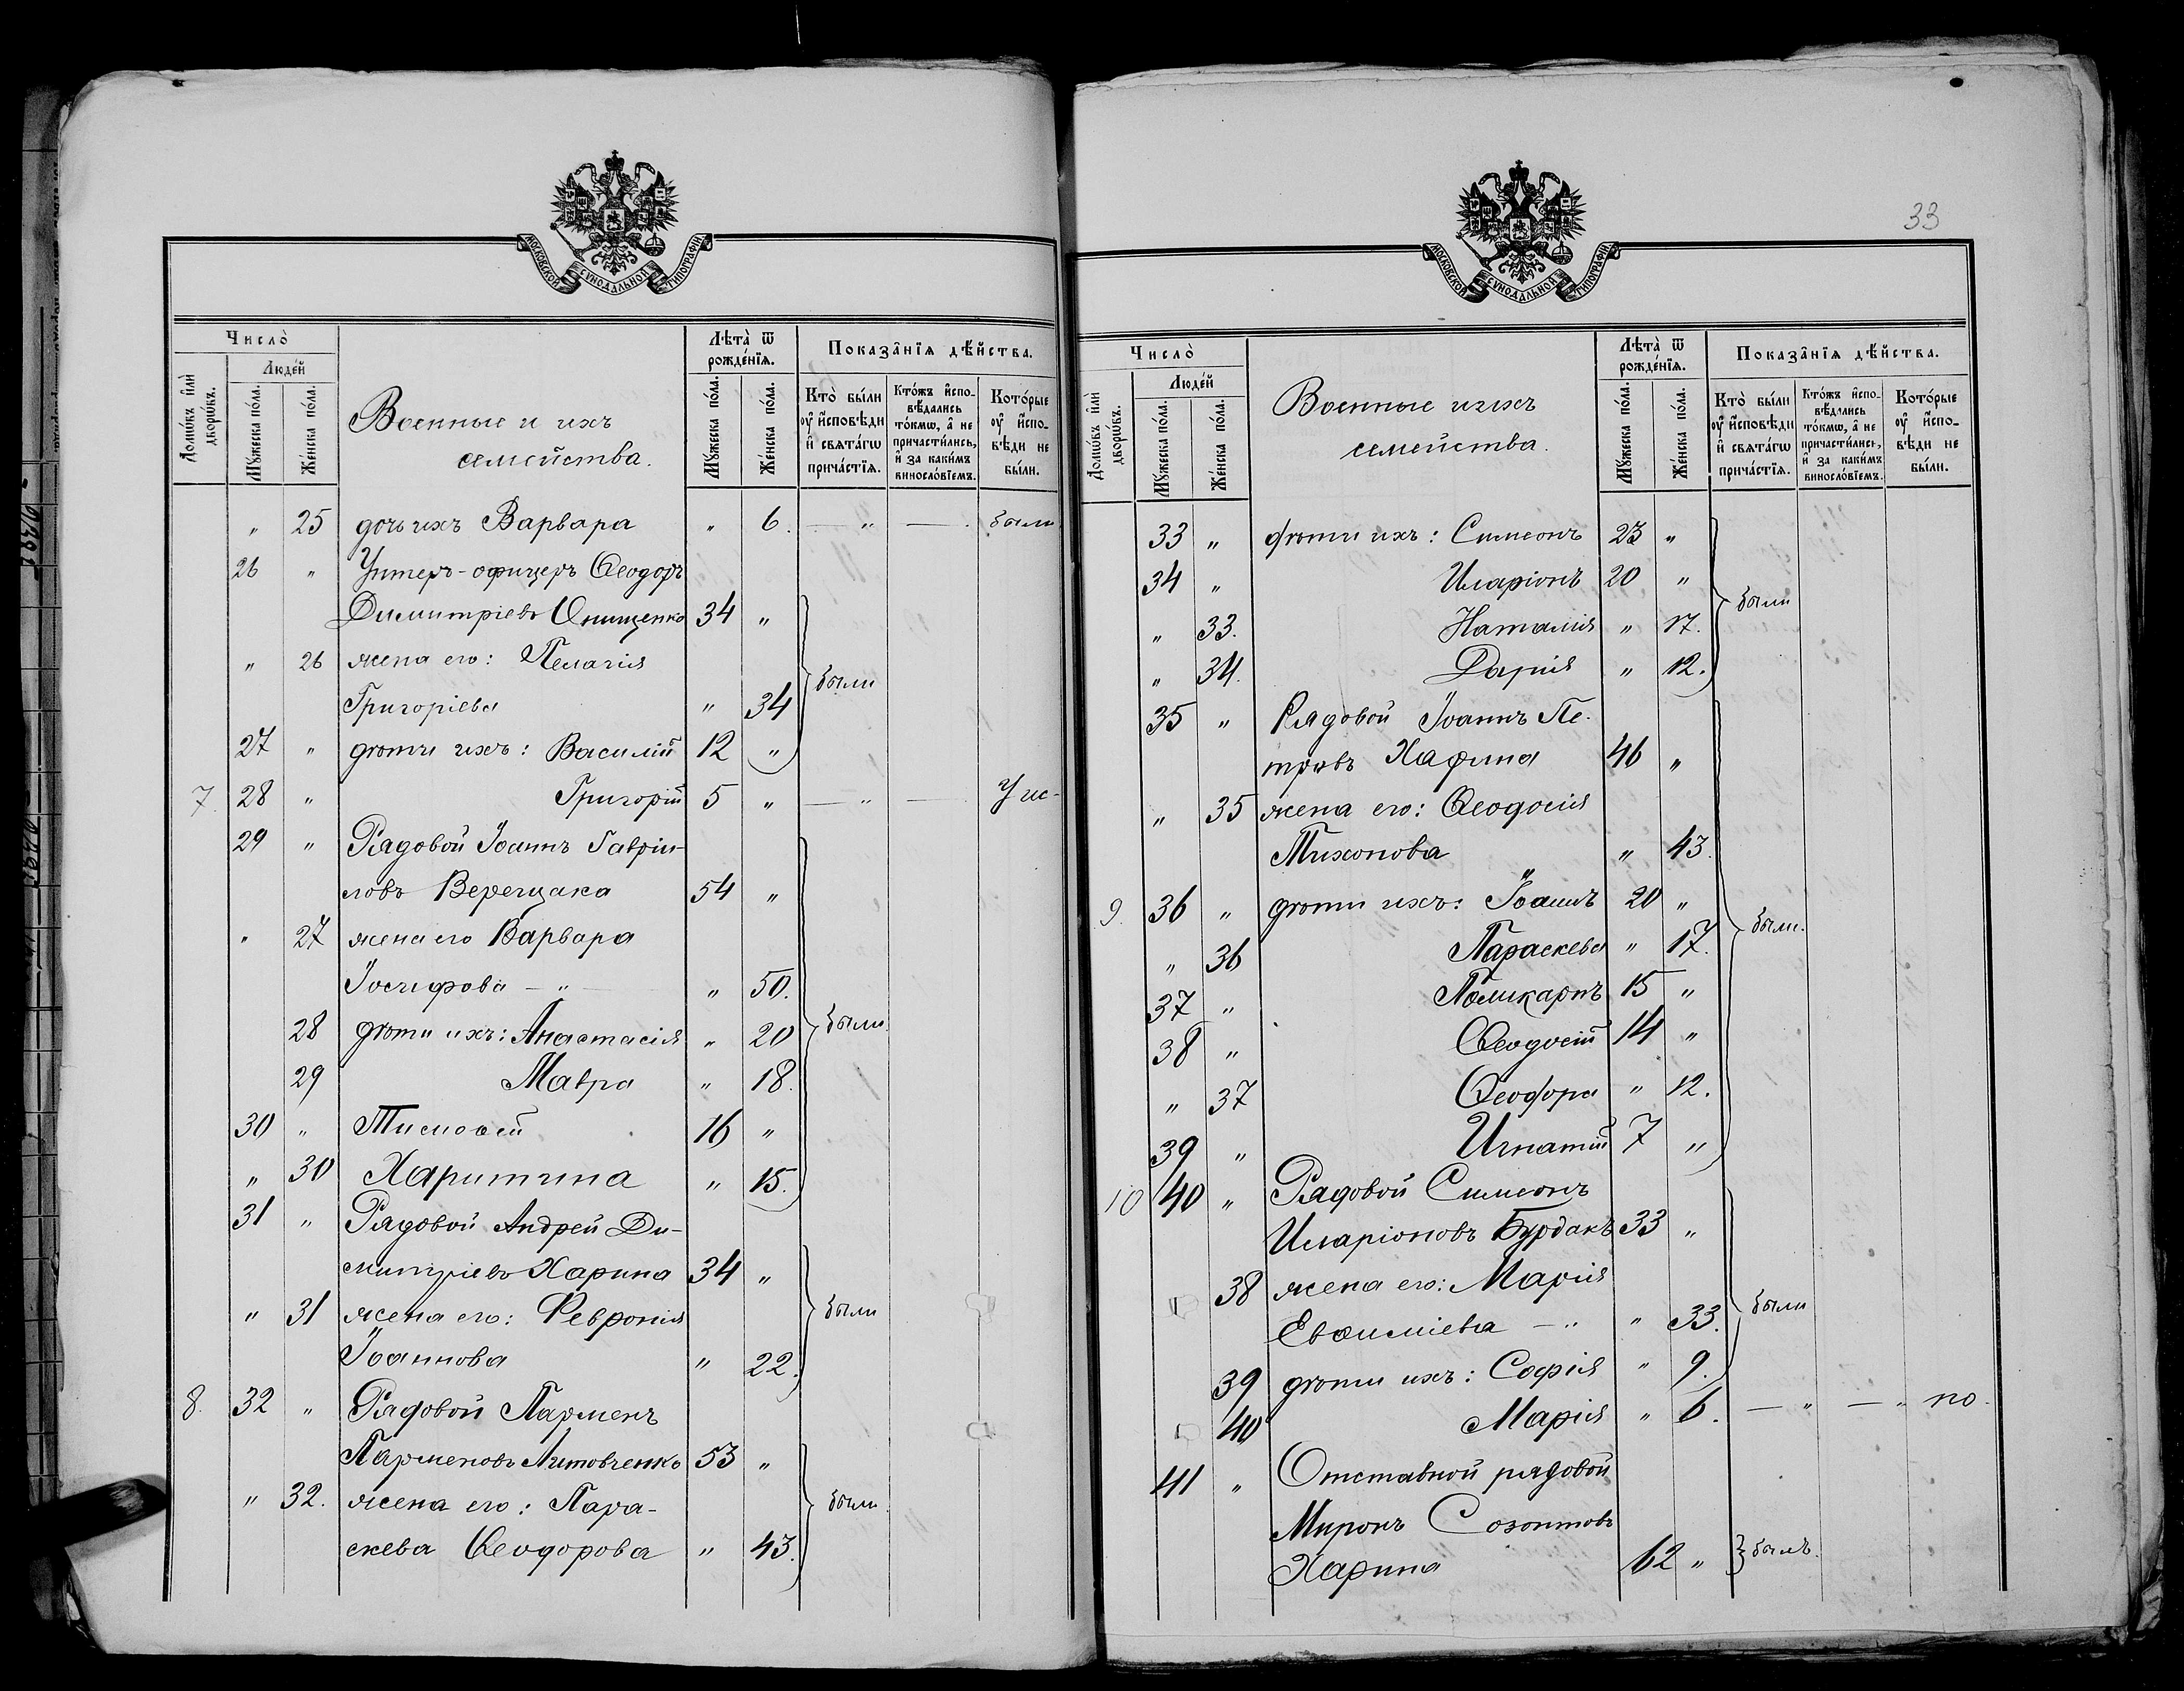 МОСКОВСКОЙ СѴНОДАЛЬНОЙ ТИПОГРАФІИ
Число̀
Люде́й
Домѡ́въ и҆лѝ дворѡ́въ.
Мꙋ́жеска по́ла.
Же́нска по́ла.
Военные и ихъ
семейства.
Лѣта̀ ѿ рожде́нїѧ.
Мꙋ́жеска по́ла.
Же́нска по́ла.
Показа̑нїѧ дѣ́йства.
Кто̀ бы́ли оу҆ и҆́сповѣди и҆ свѧта́гѡ прича́стїѧ.
Кто́жъ и҆спо-вѣ́дались то́кмѡ, а҆ не причасти́лись, и҆ за каки́мъ винословїемъ.
Кото́рые оу҆ и҆́спо-вѣди не бы́ли.
„ 25 дочь ихъ Варвара „ 6. — „ — были
26 „ Унтеръ-офицеръ Ѳеодоръ
Димитріевъ Онищенко 34 „
„ 26 жена его: Пелагія
были
Григоріева „ 34
27 „ дѣти ихъ: Василій 12 „
7. 28 „ Григорій 5 „ — „ —
29 „ Рядовой Іоаннъ Гаврiи-
ловъ Верещака 54 „
„ 27 жена его Варвара
Іосифова — „ — „ 50.
28 дѣти ихъ: Анастасія „ 20 были
29 Мавра „ 18.
30 „ Тимоѳей 16 „
„ 30 Харитина „ 15.
31 „ Рядовой Андрей Ди-
митріевъ Харина 34 „
„ 31 жена его: Февронія были
Іоаннова „ 22.
8. 32 „ Рядовой Парменъ
Парменовъ Литовченко 53 „
„ 32. жена его: Пара- были
скева Ѳеодорова „ 43.
33
МОСКОВСКОЙ СѴНОДАЛЬНОЙ ТИПОГРАФІИ
Число̀
Люде́й
Домѡ́въ и҆лѝ дворѡ́въ.
Мꙋ́жеска по́ла.
Же́нска по́ла.
Военные и ихъ
семейства.
Лѣта̀ ѿ рожде́нїѧ.
Мꙋ́жеска по́ла.
Же́нска по́ла.
Показа̑нїѧ дѣ́йства.
Кто̀ бы́ли оу҆ и҆́сповѣди и҆ свѧта́гѡ прича́стїѧ.
Кто́жъ и҆спо-вѣ́дались то́кмѡ, а҆ не причасти́лись, и҆ за каки́мъ винословїемъ.
Кото́рые оу҆ и҆́спо-вѣди не бы́ли.
33 „ дѣти ихъ: Симеонъ 23 „
34 „ Иларіонъ 20 „
были
„ 33. Наталія „ 17.
„ 34. Дарія „ 12.
35 „ Рядовой Іоаннъ Пе-
тровъ Харина 46 „
„ 35 жена его: Ѳеодосія
Тихонова „ 43.
9. 36 „ дѣти ихъ: Іоаннъ 20 „
были.
„ 36 Параскева „ 17.
37 „ Поликарпъ 15 „
38 „ Ѳеодосій 14 „
„ 37 Ѳеодора „ 12.
39 „ Игнатій 7 „
10 40 „ Рядовой Симеонъ
Иларіоновъ Бурдакъ 33 „
38 жена его: Марія
были
Евѳиміева — „ „ 33.
39 дѣти ихъ: Софія „ 9.
40 Марія „ 6. — „ — „ по.
41 „ Отставной рядовой
Миронъ Созонтовъ
Харина 62 „ былъ.